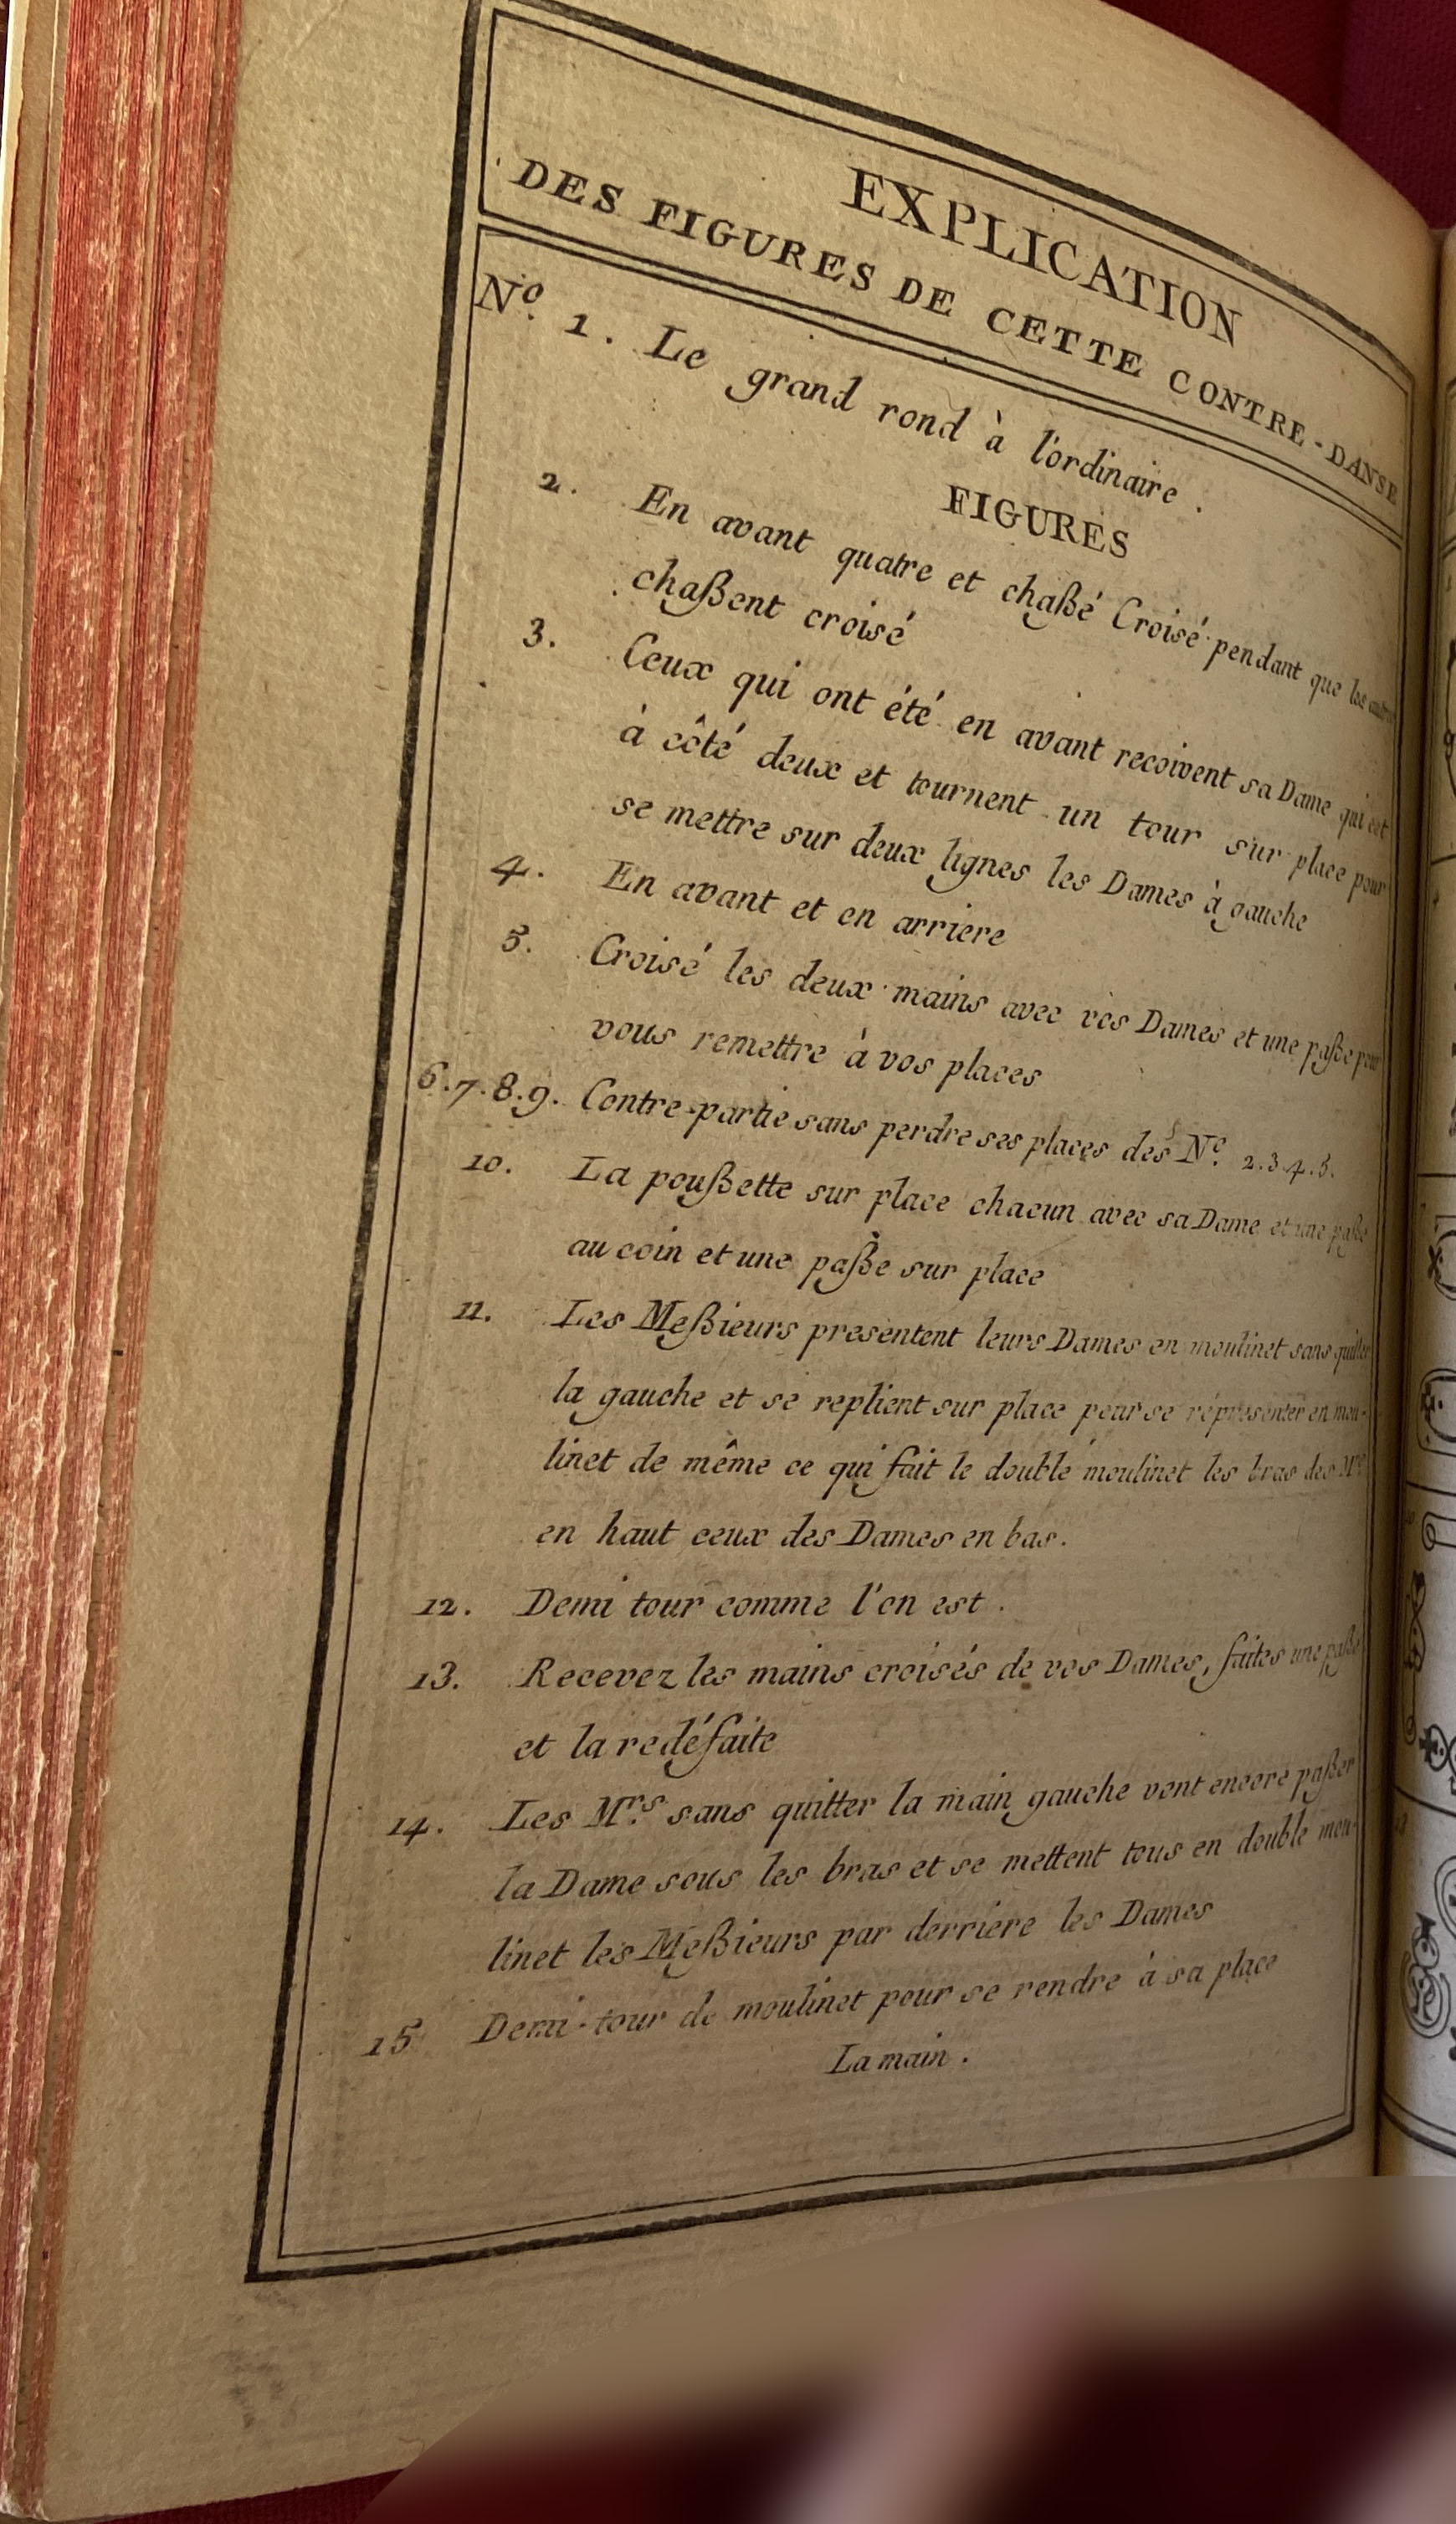 EXPLICATION
DES FIGURES DE CETTE CONTRE-DANSE
Nº. 1. Le grand rond à l'ordinaire.
FIGURES
2. En avant quatre et chaßé Croisé pendant que les autres
chaßent croisé
3. Ceux qui ont été en avant recoivent sa Dame qui est
à côté deux et tournent un tour sur place pour
se mettre sur deux lignes les Dames à gauche
4. En avant et en arriere
5. Croisé les deux mains avec vos Dames et une paße pour
vous remettre à vos places
6.7.8.9. Contre-partie sans perdre ses places des Nº. 2.3.4.5.
10. La poußette sur place chacun avec sa Dame et une paße
au coin et une paße sur place
11. Les Meßieurs presentent leurs Dames en moulinet sans quitter
la gauche et se replient sur place pour se représenter en mou-
linet de même ce qui fait le double moulinet les bras des Mrs
en haut ceux des Dames en bas.
12. Demi tour comme l'on est.
13. Recevez les mains croisés de vos Dames, faites une paße
et la redéfaite
14. Les Mrs. sans quitter la main gauche vont encore paßer
la Dame sous les bras et se mettent tous en double mou-
linet les Meßieurs par derriere les Dames
15 Demi-tour de moulinet pour se rendre à sa place
La main.